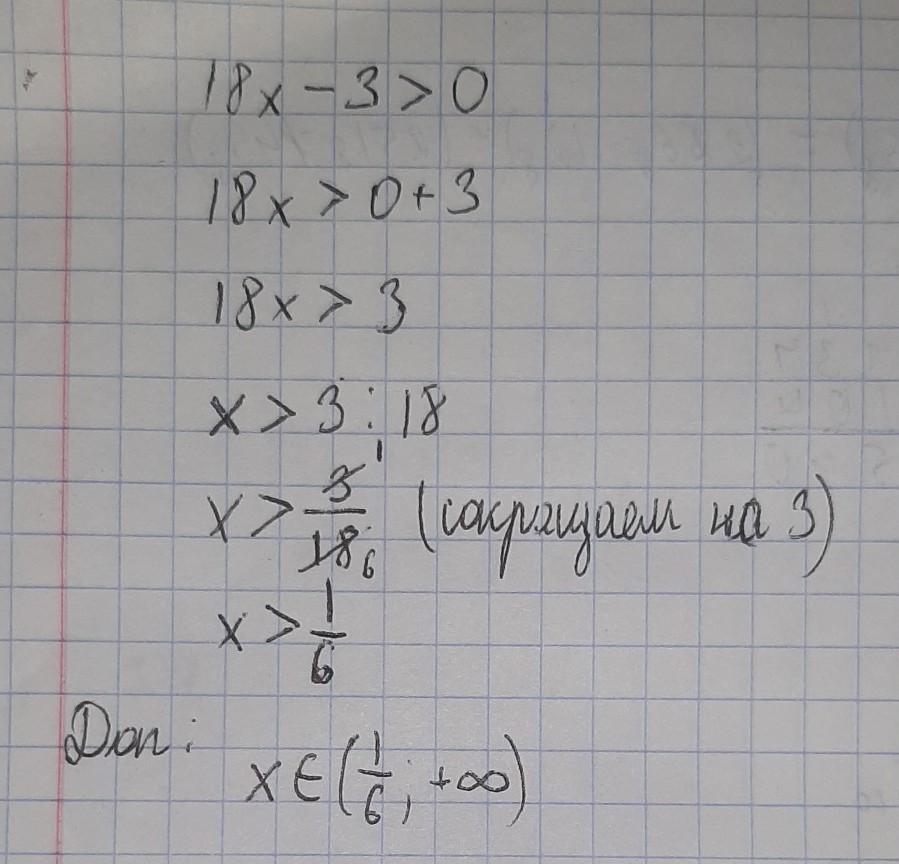 18x - 3 > 0
18x > 0 + 3
18x > 3
x > 3 : 18
x > 3/18 1 6 (сокращаем на 3)
x > 1/6
Доп:
x ∈ (1/6; +∞)